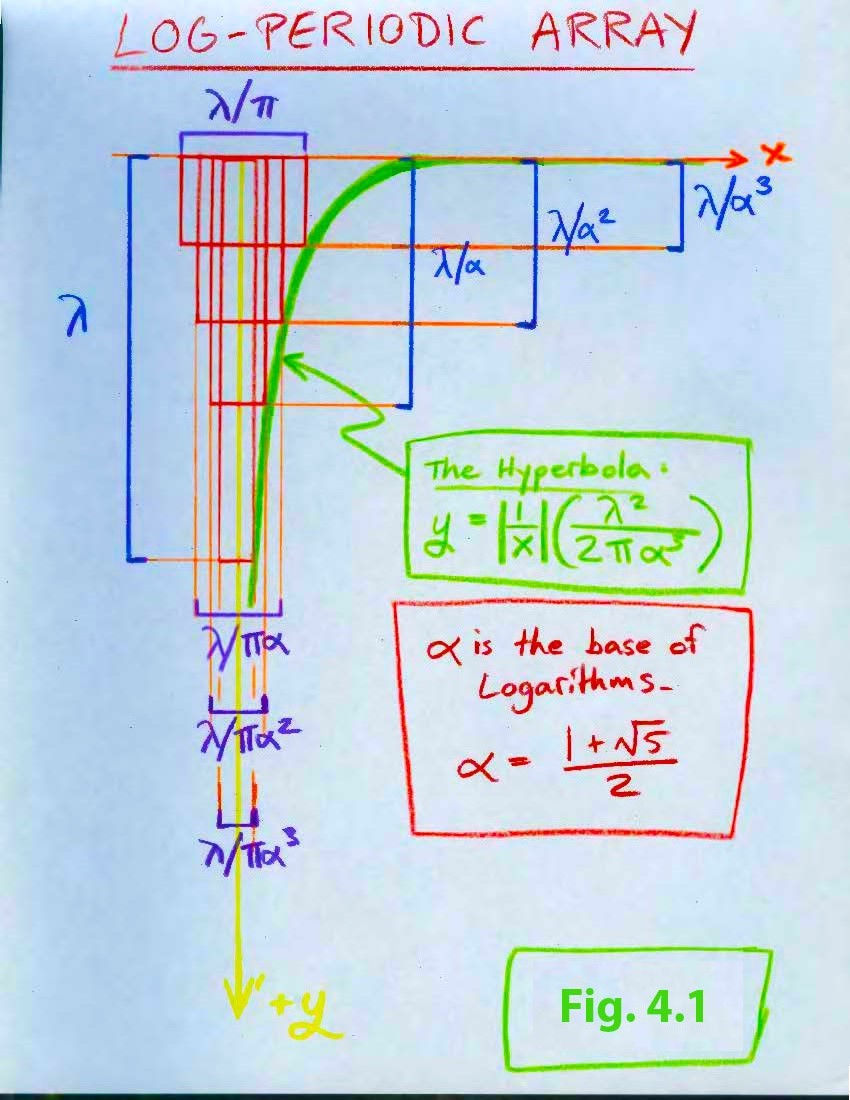 LOG-PERIODIC ARRAY
λ/π
x
λ/α³
λ/α²
λ/α
λ
The Hyperbola:
y = |1/x|(λ²/2πα³)
λ/πα
α is the base of
Logarithms-
λ/πα²
α = 1+√5/2
λ/πα³
+y
Fig. 4.1